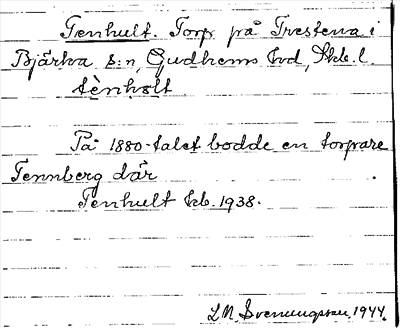 Tenhult. Torp på Trestena i
Bjärka s:n, Gudhems hd, Skb. l.
tènhølt
På 1880-talet bodde en torpare
Tennberg där.
Tenhult kb. 1938.
L M Svenungsson, 1944.